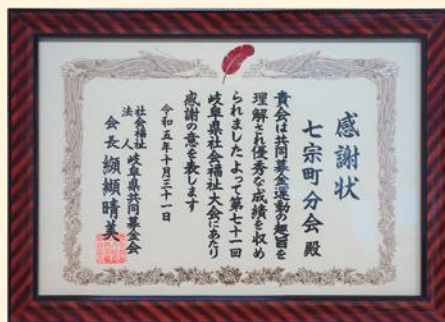 感謝状
七宗町分会 殿
貴会は共同募金運動の趣旨を
理解され優秀な成績を収め
られましたよって第七十一回
岐阜県社会福祉大会にあたり
感謝の意を表します
令和五年十月三十一日
社会福祉法人 岐阜県共同募金会
会長 纐纈晴美